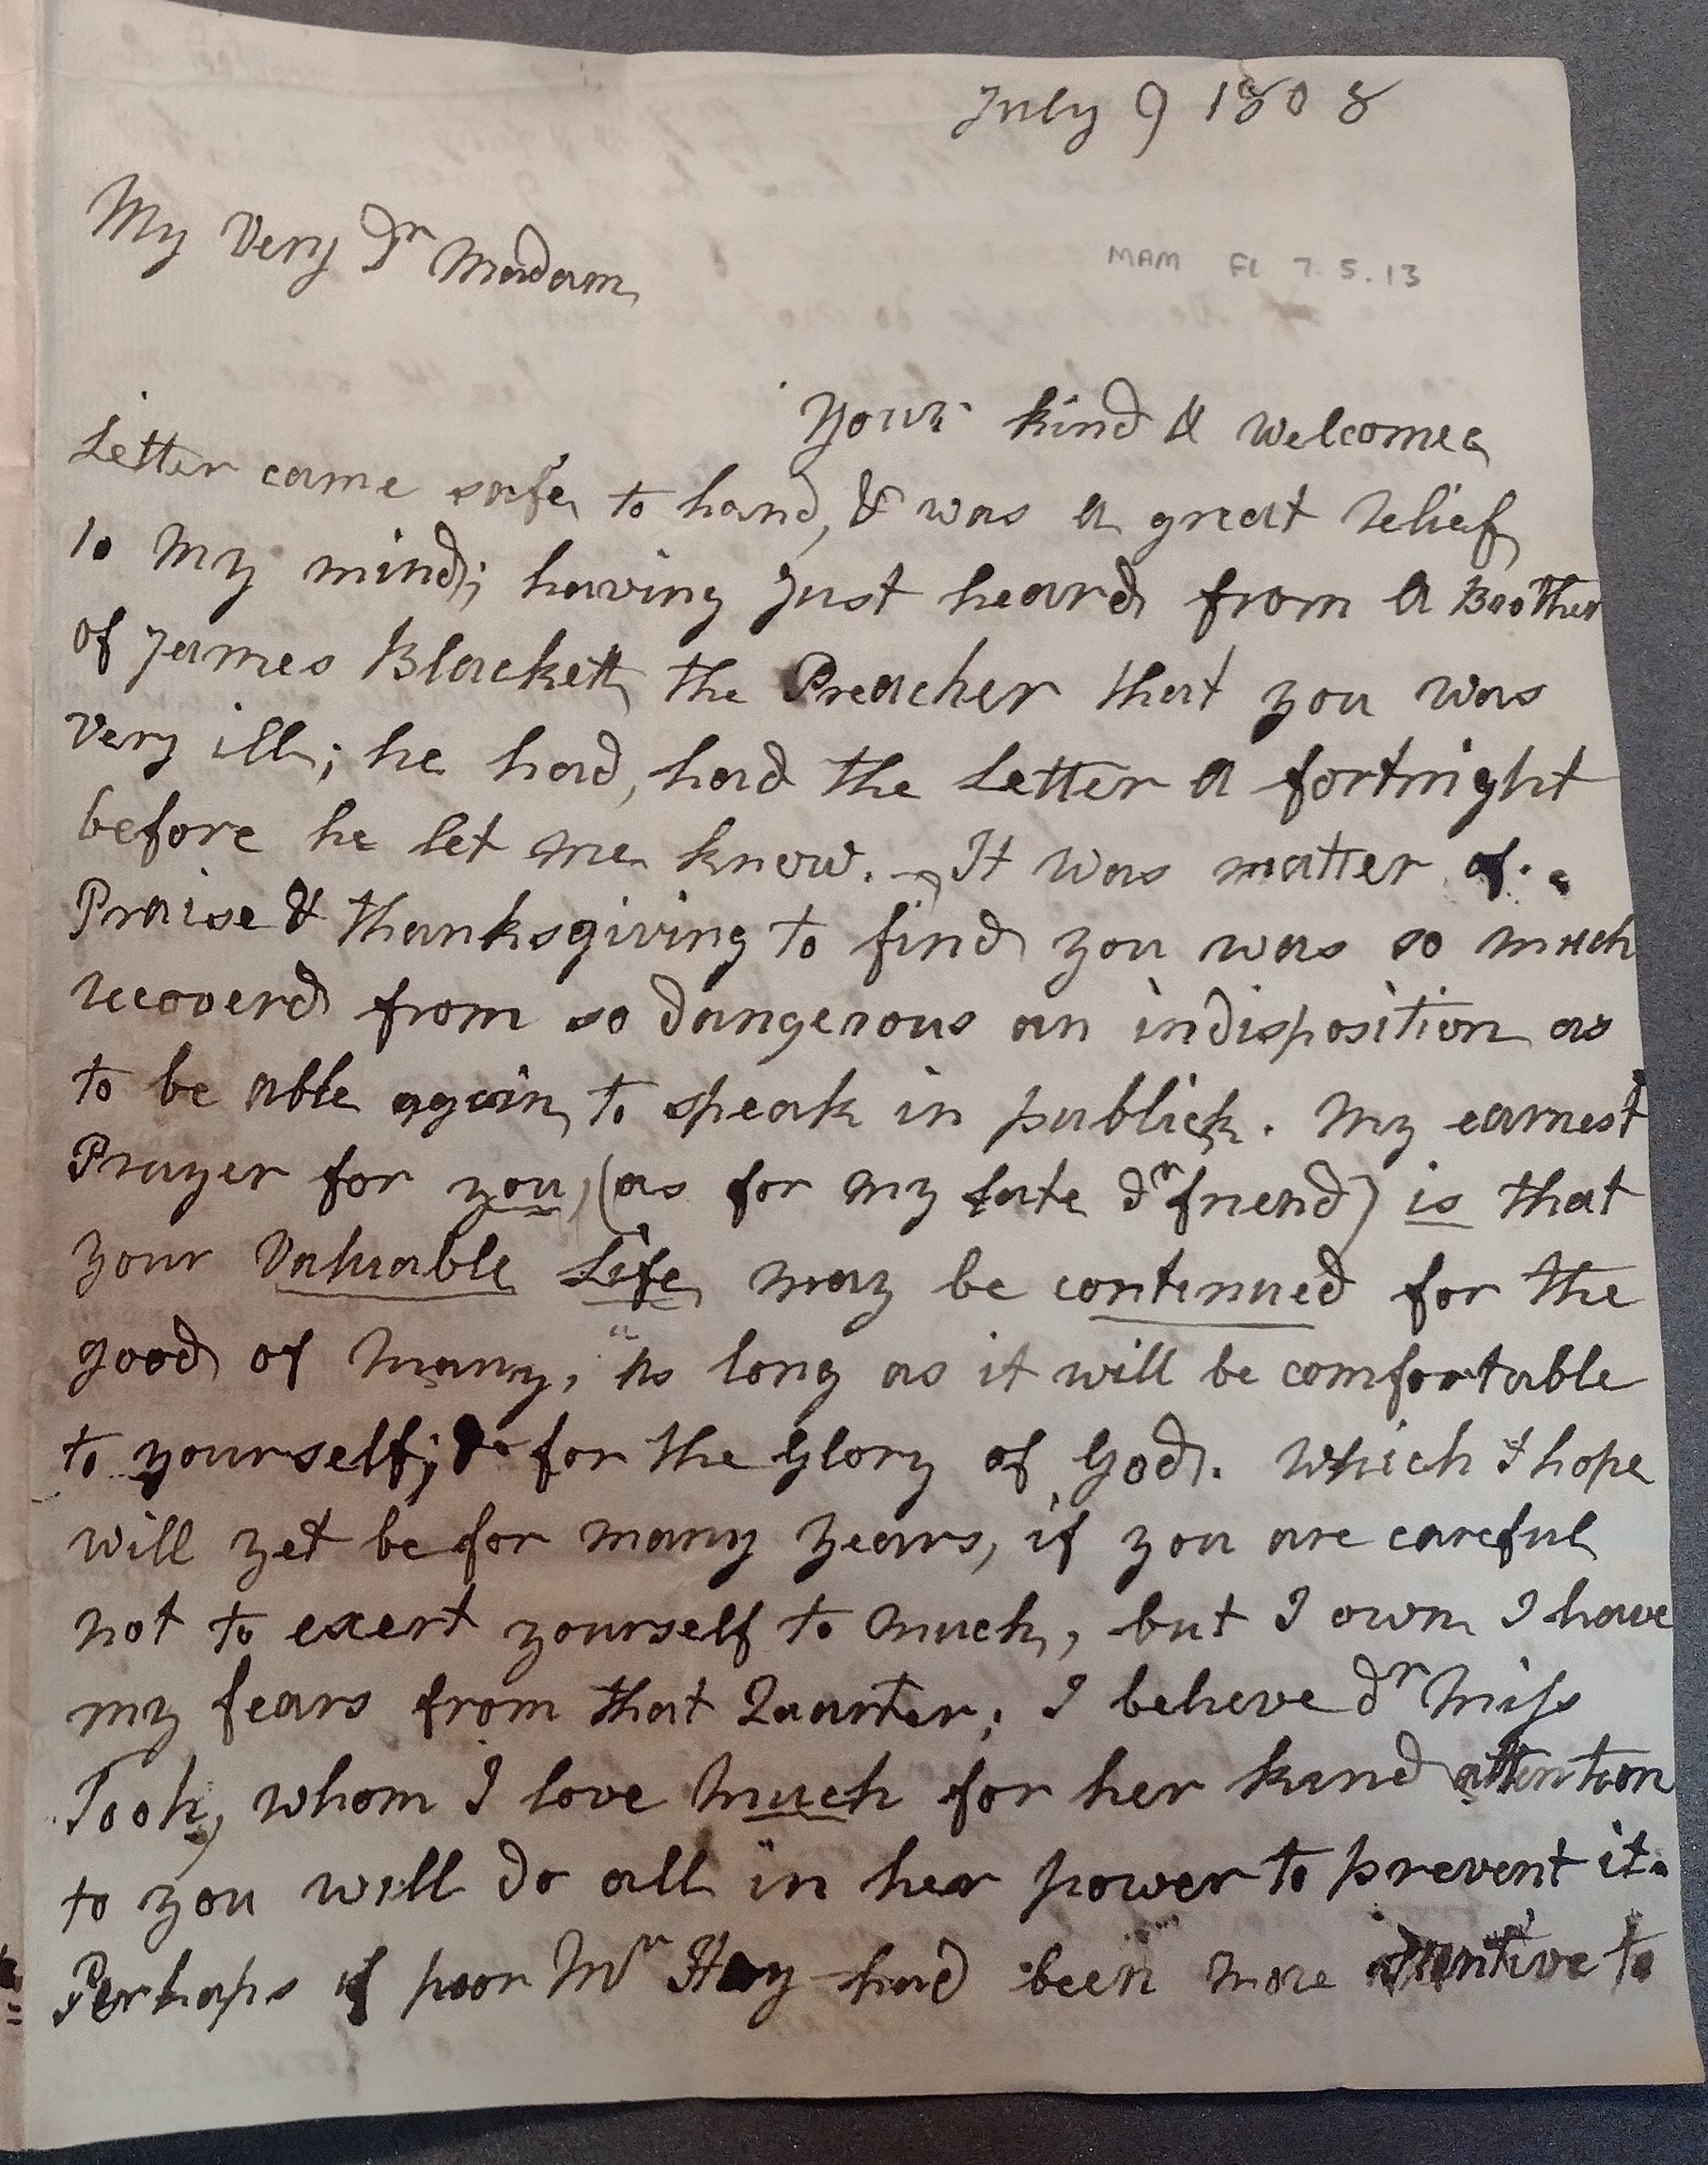 July 9 1808
My Very Dr Madam
MAM FL 7.5.13
Your kind & Welcome
Letter came safe to hand, & was a great relief
to my mind; having Just heard from a Brother
of James Blackett the Preacher that you was
very ill; he had, had the Letter a fortnight
before he let me know. It was matter of
Praise & thanksgiving to find you was so much
recoverd from so dangerous an indisposition as
to be able again to speak in publick. My earnest
Prayer for you, (as for my late dr friend) is that
your Valuable Life may be continued for the
good of many, as long as it will be comfortable
to yourself; & for the Glory of God. Which I hope
will yet be for many years, if you are careful
not to exert yourself to much, but I own I have
my fears from that Quarter; I believe dr Miss
Tooth, whom I love much for her kind attention
to you will do all in her power to prevent it.
Perhaps if poor Mr Hey had been more attentive to